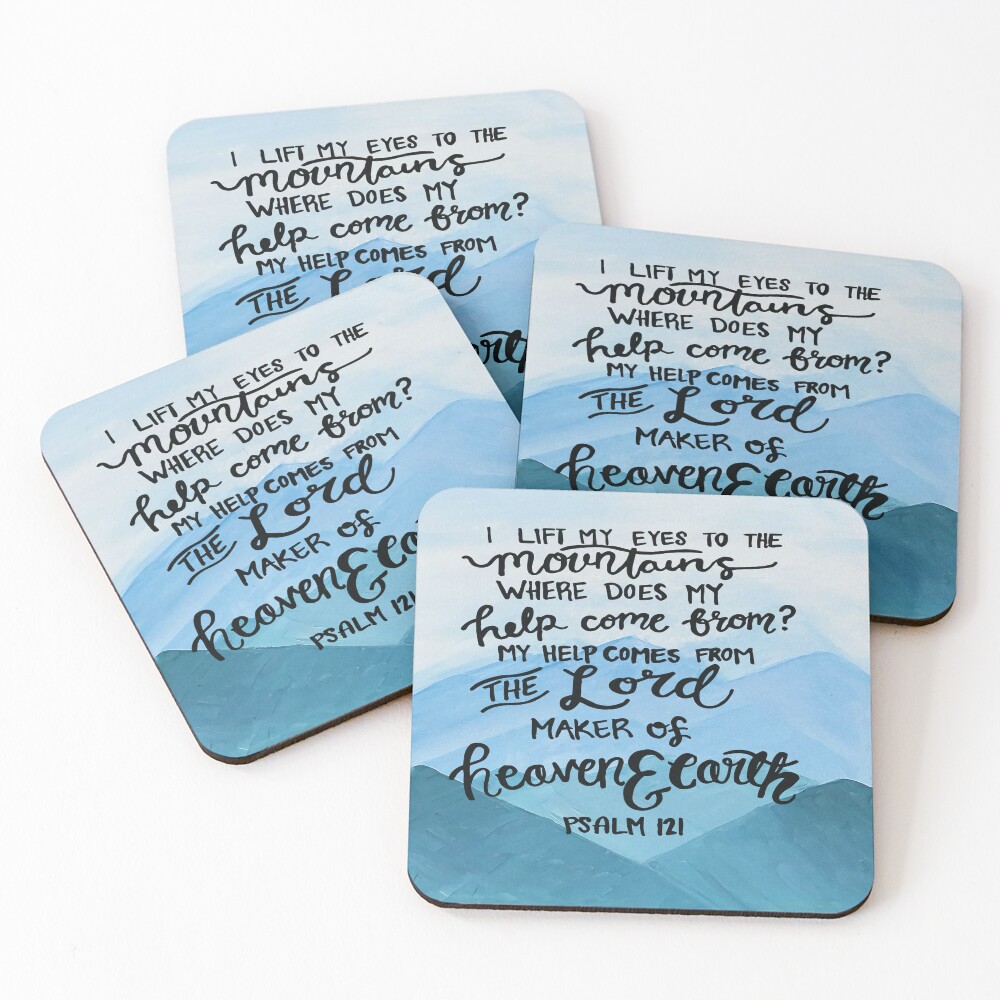 I LIFT MY EYES TO THE
mountains
WHERE DOES MY
help come from?
MY HELP COMES FROM
THE Lord
I LIFT MY EYES TO THE
mountains
WHERE DOES MY
help come from?
MY HELP COMES FROM
THE Lord
MAKER OF
heaven & earth
I LIFT MY EYES TO THE
mountains
WHERE DOES MY
help come from?
MY HELP COMES FROM
THE Lord
MAKER OF
heaven &
PSALM 121
I LIFT MY EYES TO THE
mountains
WHERE DOES MY
help come from?
MY HELP COMES FROM
THE Lord
MAKER OF
heaven & earth
PSALM 121